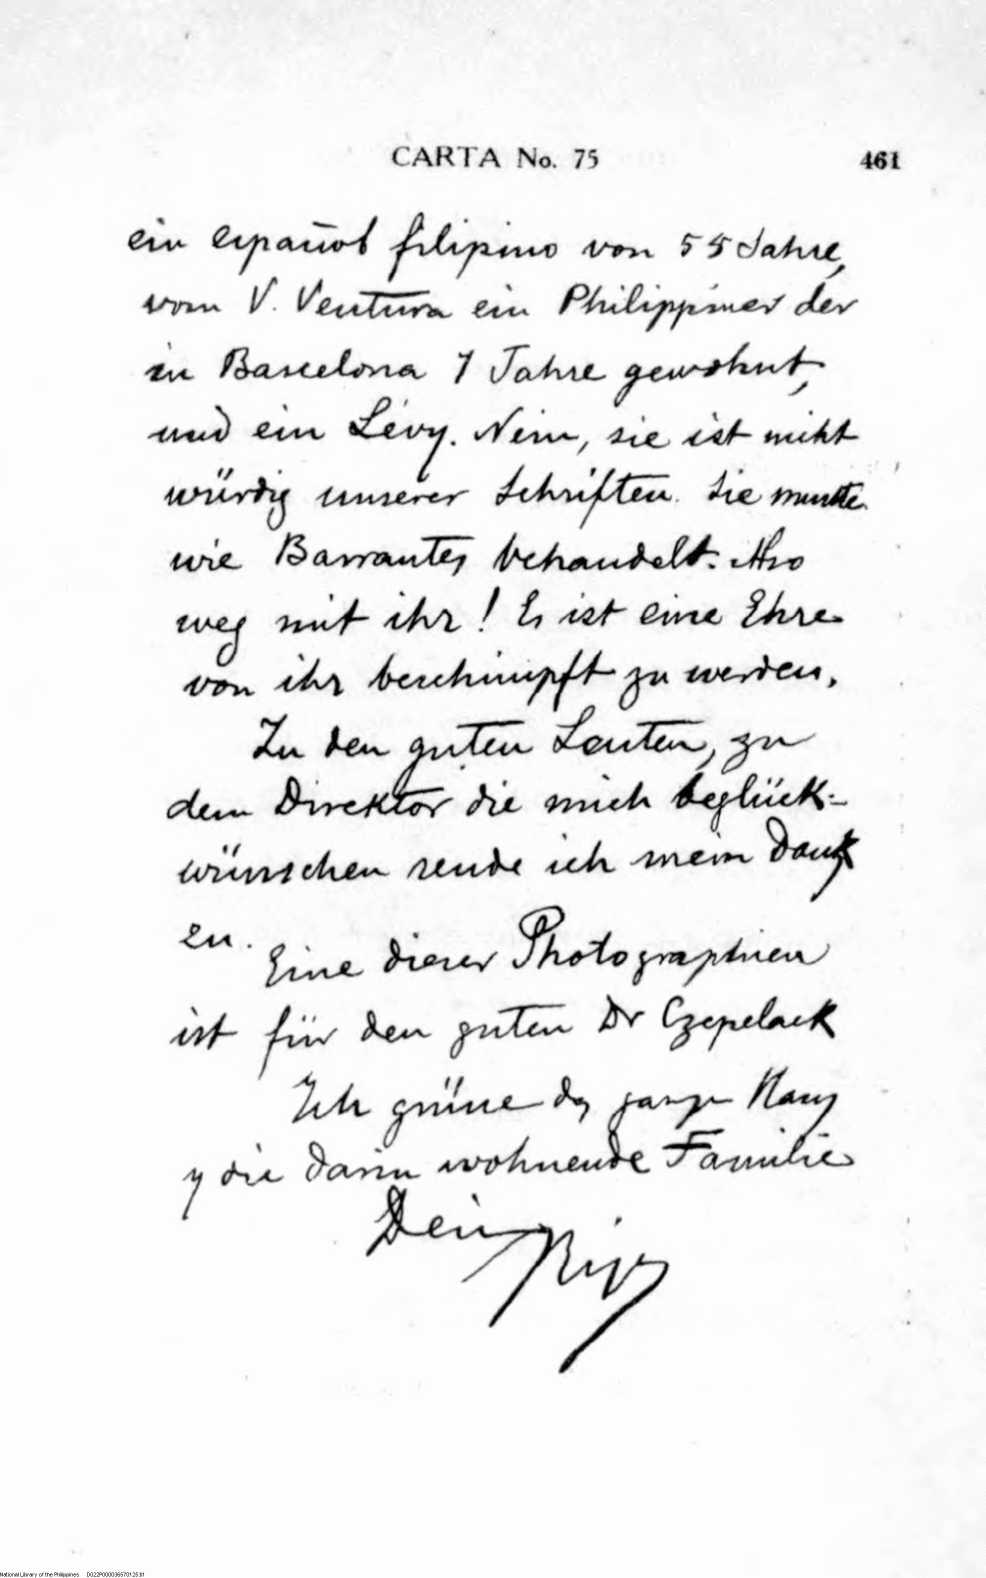 CARTA No. 75 461
ein español filipino von 55 Jahre,
vom V. Ventura ein Philippiner der
in Barcelona 7 Jahre gewohnt,
und ein Lévy. Nein, sie ist nicht
würdig unserer Schriften. Sie musste
wie Barrantes behandelt. Also
weg mit ihr! Es ist eine Ehre
von ihr beschimpft zu werden.
Zu den guten Leuten, zu
dem Direktor die mich beglück-
wünschen sende ich mein Dank
zu.
Eine dieser Photographien
ist für den guten Dr Czepelack
Ich grüsse das ganze Haus
y die darin wohnende Familie
Dein Rizal
National Library of the Philippines